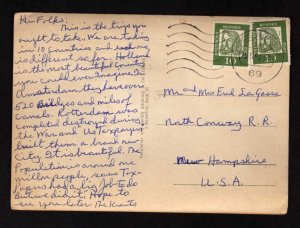 Hi Folks:
This is the trip you
ought to take. We are taking
in 10 countries and each one
is different so far. Holland
is the most beautiful country
you could ever imagine. In
Amsterdam they have over
520 Bridges and miles of
Canals. Rotterdam was
completed destroyed during
the War and US Taxpayers
built them a brand new
City. It is beautiful. The
Population is around one
million people, so us Tax
Payers had a big job to do
But we did it. Hope to
see you later
BUNDESPOST
10
BUNDESPOST
10
69
Mr and Mrs Fred LaGasse
North Conway R.R.
New Hampshire
U.S.A.